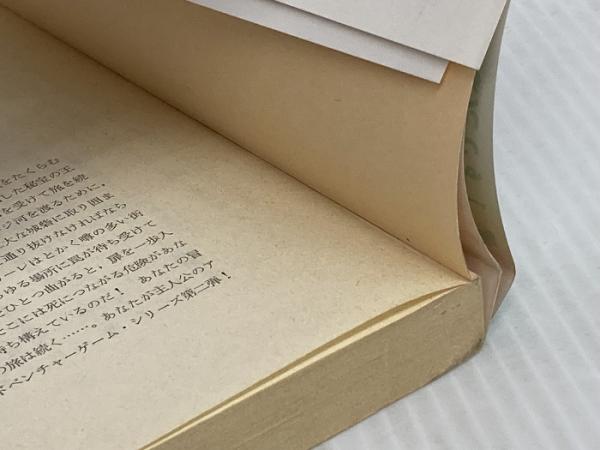 をたくらむ
した秘宝の王
を受けて旅を続
ジ河を渡るために、
大な城砦に取り囲ま
通り抜けなければなら
ーレはとかく噂の多い街
らゆる場所に罠が待ち受けて
ひとつ曲がると、扉を一歩入
ここには死につながる危険があな
待ち構えているのだ！ あなたの冒
の旅は続く……。あなたが主人公のア
ドベンチャーゲーム・シリーズ第二弾！